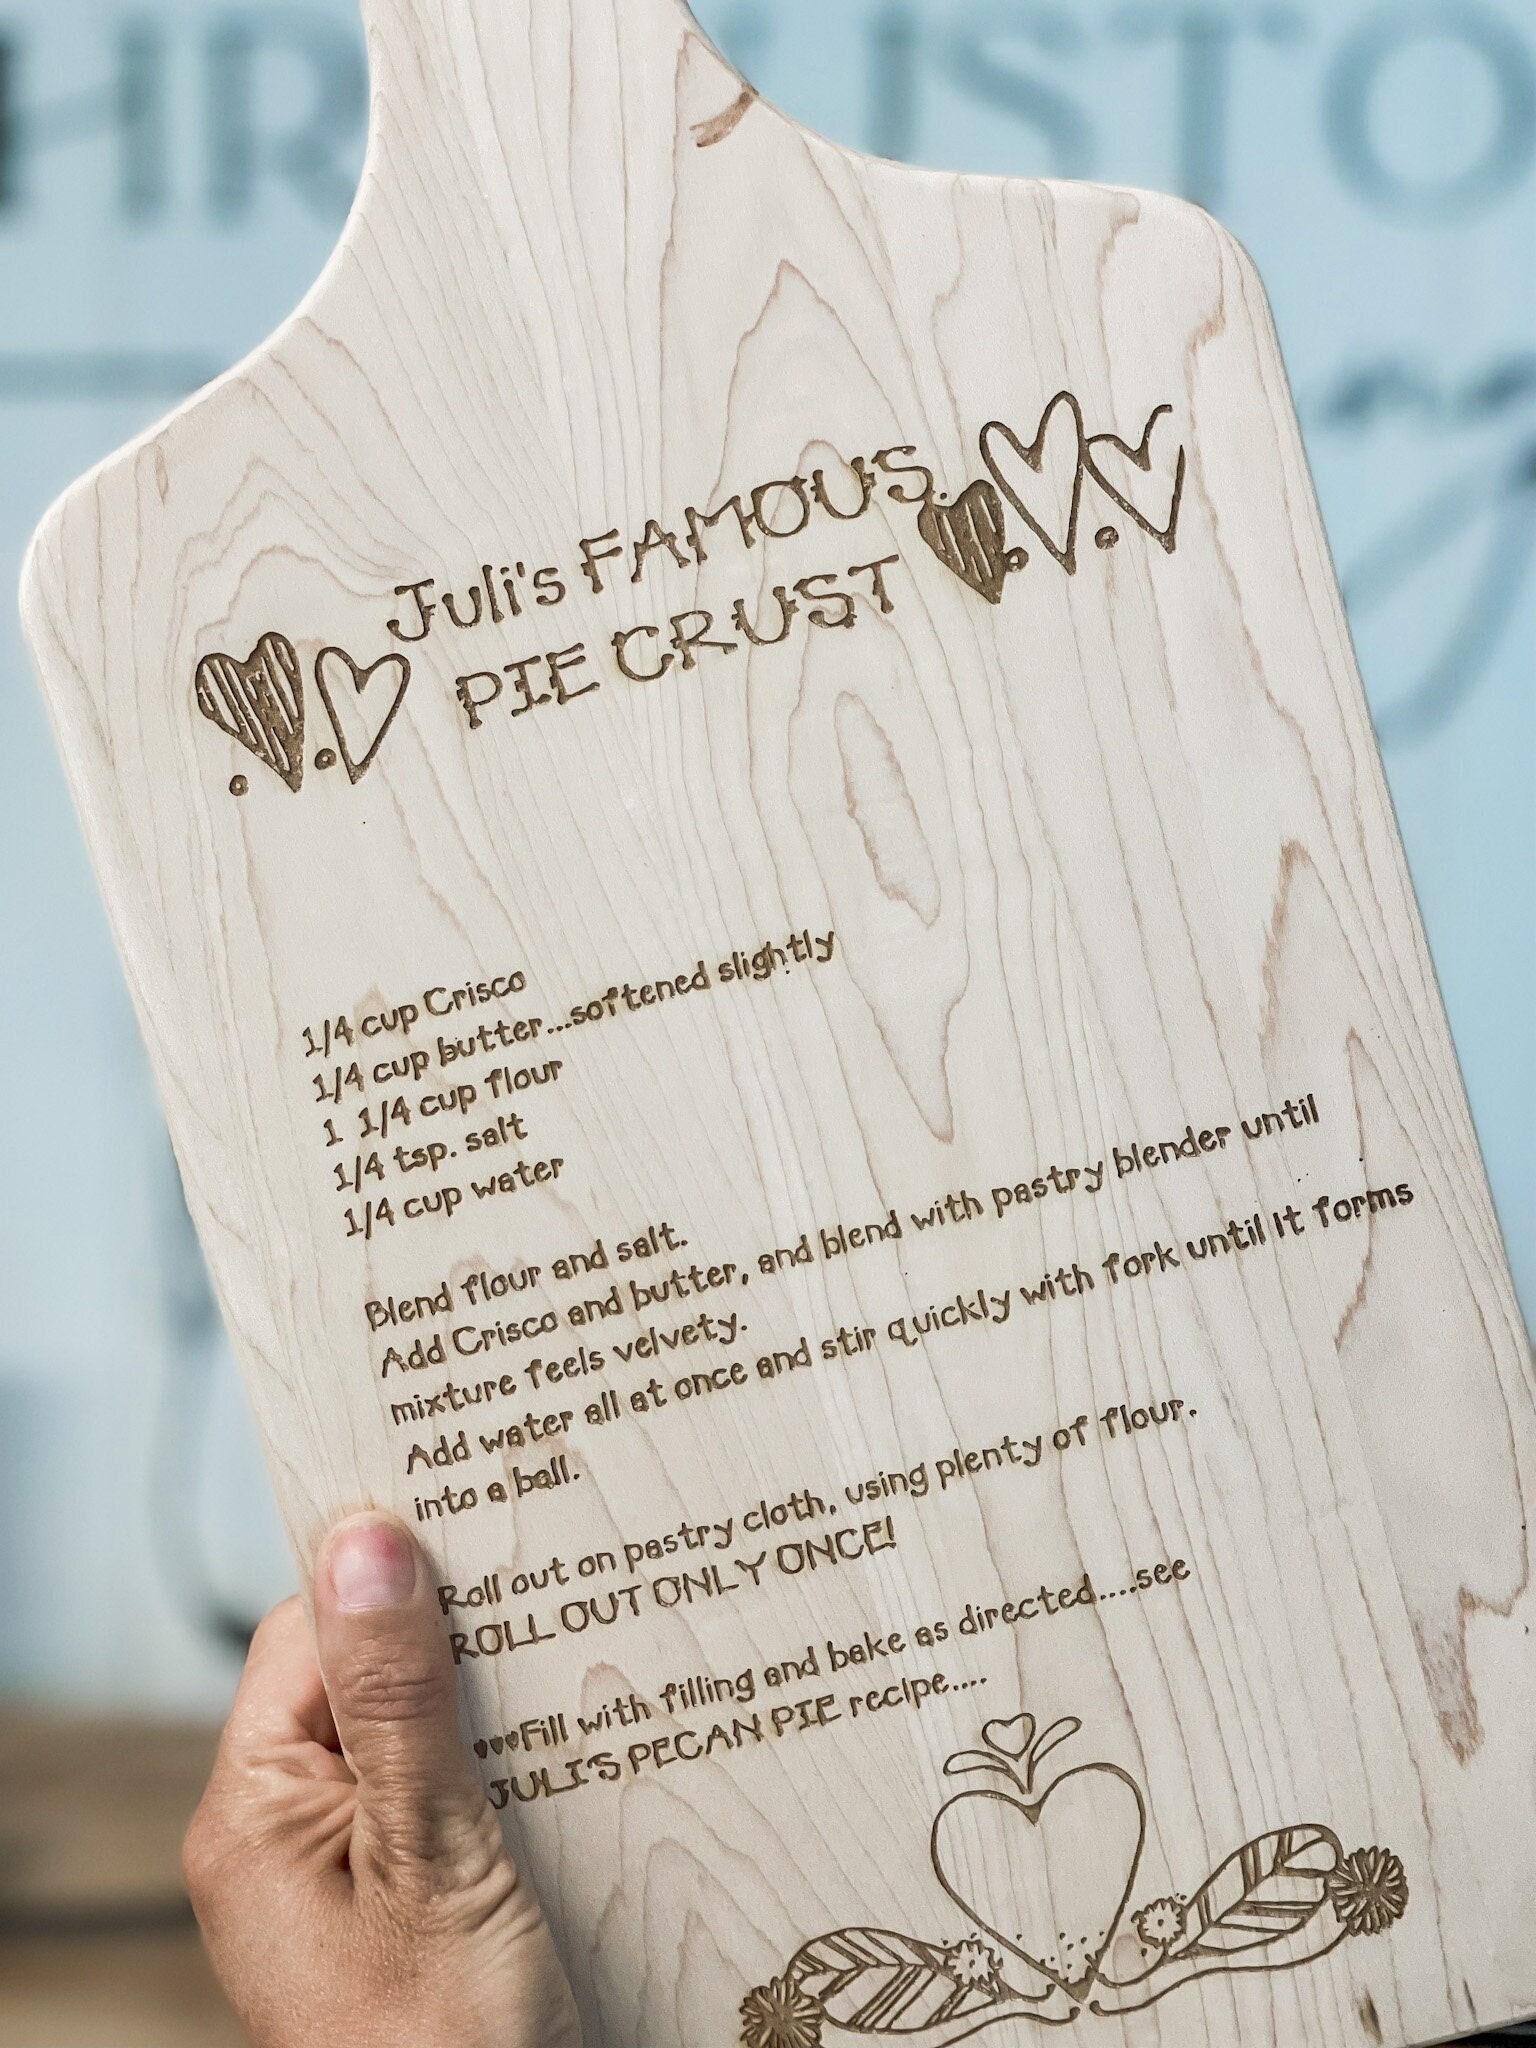 Juli's FAMOUS
PIE CRUST
1/4 cup Crisco
1/4 cup butter...softened slightly
1 1/4 cup flour
1/4 tsp. salt
1/4 cup water
Blend flour and salt.
Add Crisco and butter, and blend with pastry blender until
mixture feels velvety.
Add water all at once and stir quickly with fork until it forms
into a ball.
Roll out on pastry cloth, using plenty of flour.
ROLL OUT ONLY ONCE!
♥♥♥Fill with filling and bake as directed....see
JULI'S PECAN PIE recipe....